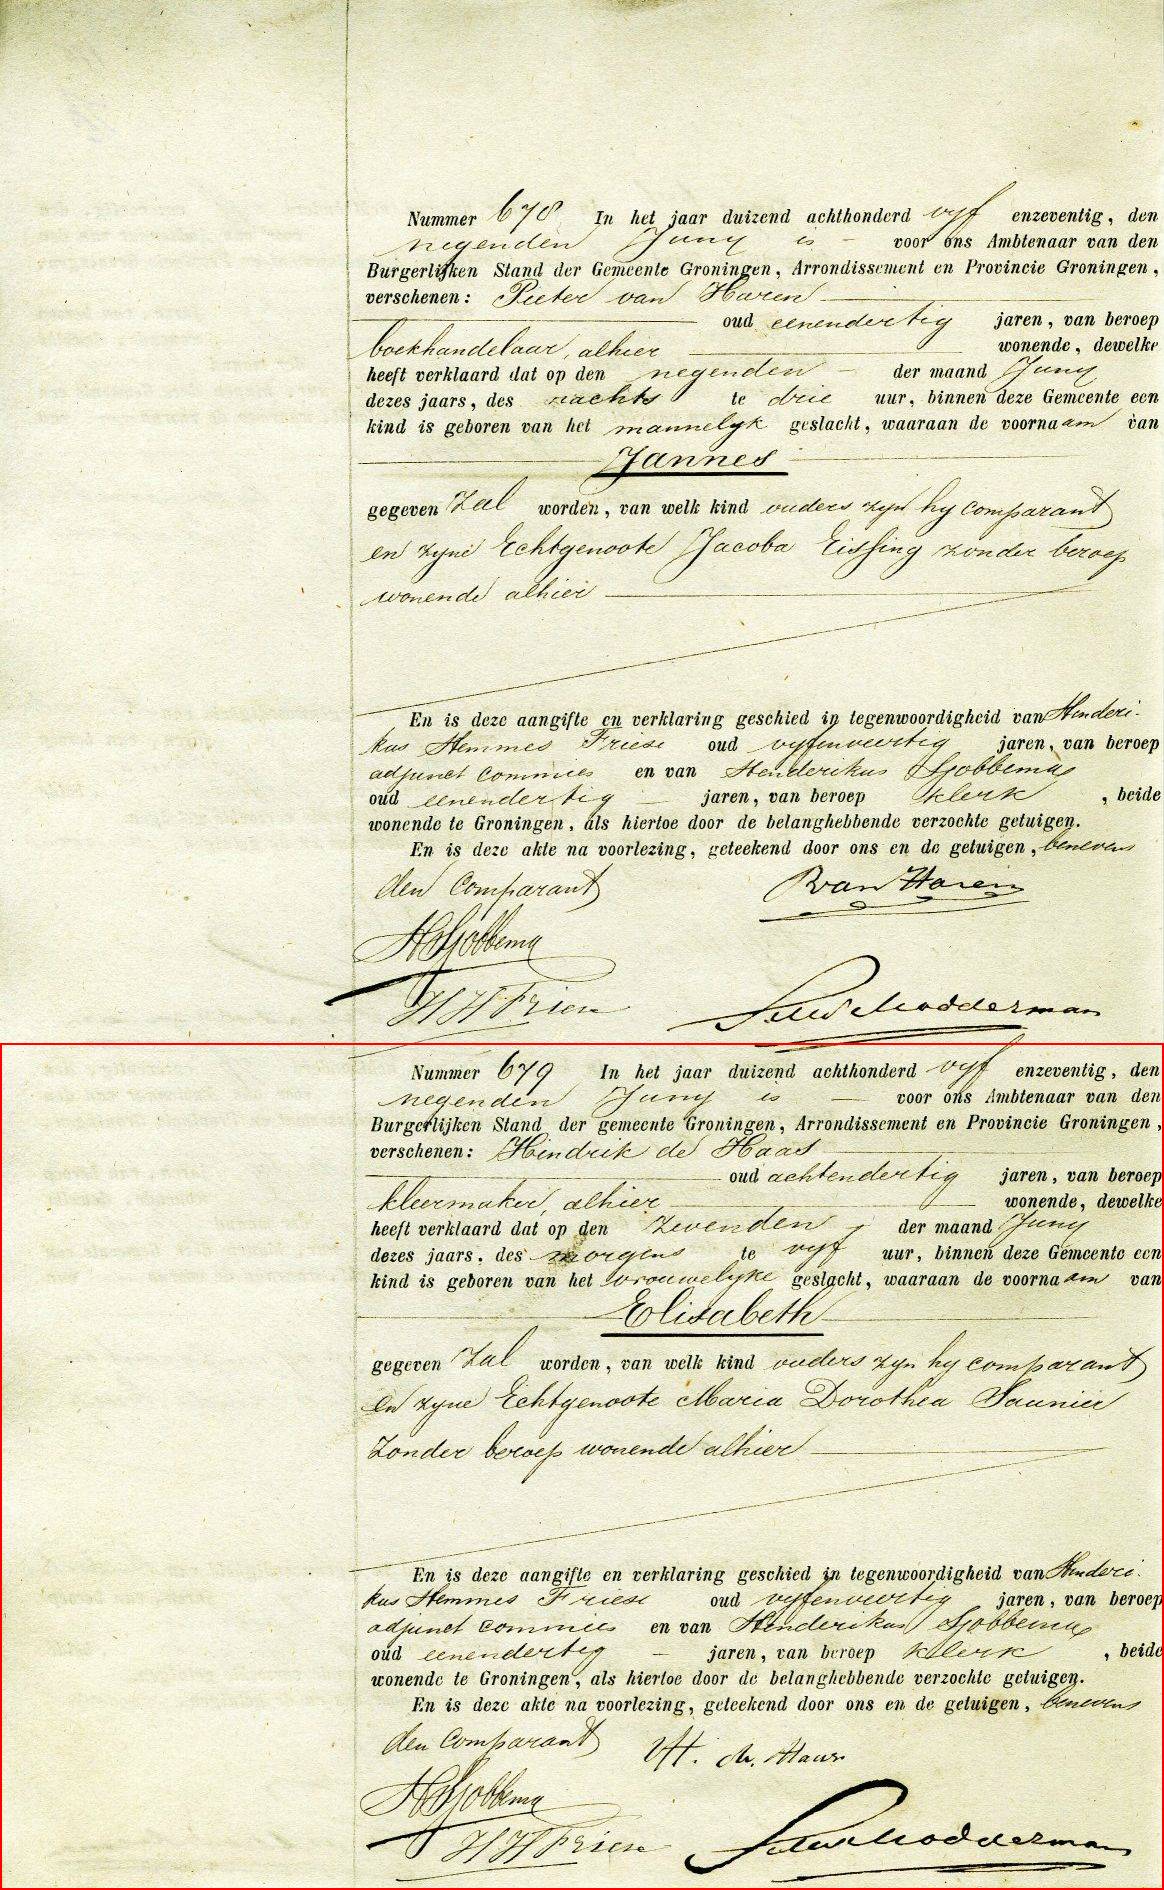 Nummer 678 In het jaar duizend achthonderd vyf enzeventig, den
negenden Juny is – voor ons Ambtenaar van den
Burgerlijken Stand der Gemeente Groningen, Arrondissement en Provincie Groningen,
verschenen: Pieter van Haren
oud eenendertig jaren, van beroep
boekhandelaar, alhier wonende, dewelke
heeft verklaard dat op den negenden – der maand Juny
dezes jaars, des nachts te drie uur, binnen deze Gemeente een
kind is geboren van het mannelyk geslacht, waaraan de voornaam van
Jannes
gegeven zal worden, van welk kind ouders zyn hy comparant
en zyne Echtgenoote Jacoba Eissing zonder beroep
wonende alhier
En is deze aangifte en verklaring geschied in tegenwoordigheid van Henderi-
kus Hemmes Friese oud vyfenveertig jaren, van beroep
adjunct commies en van Henderikus Sjobbema
oud eenendertig – jaren, van beroep klerk , beide
wonende te Groningen, als hiertoe door de belanghebbende verzochte getuigen.
En is deze akte na voorlezing, geteekend door ons en de getuigen, benevens
den Comparant PvanHaren
HSjobbema
HHFriese Modderman
Nummer 679 In het jaar duizend achthonderd vyf enzeventig, den
negenden Juny is – voor ons Ambtenaar van den
Burgerlijken Stand der gemeente Groningen, Arrondissement en Provincie Groningen,
verschenen: Hindrik de Haas
oud achtendertig jaren, van beroep
kleermaker, alhier wonende, dewelke
heeft verklaard dat op den zevenden – der maand Juny
dezes jaars, des morgens te vyf uur, binnen deze Gemeente een
kind is geboren van het vrouwelyke geslacht, waaraan de voornaam van
Elisabeth
gegeven zal worden, van welk kind ouders zyn hy comparant
en zyne Echtgenoote Maria Dorothea Saunier
zonder beroep wonende alhier
En is deze aangifte en verklaring geschied in tegenwoordigheid van Henderi-
kus Hemmes Friese oud vyfenveertig jaren, van beroep
adjunct commies en van Henderikus Sjobbema
oud eenendertig – jaren, van beroep klerk , beide
wonende te Groningen, als hiertoe door de belanghebbende verzochte getuigen.
En is deze akte na voorlezing, geteekend door ons en de getuigen, benevens
den Comparant H. de Haas
HSjobbema
HHFriese Modderman